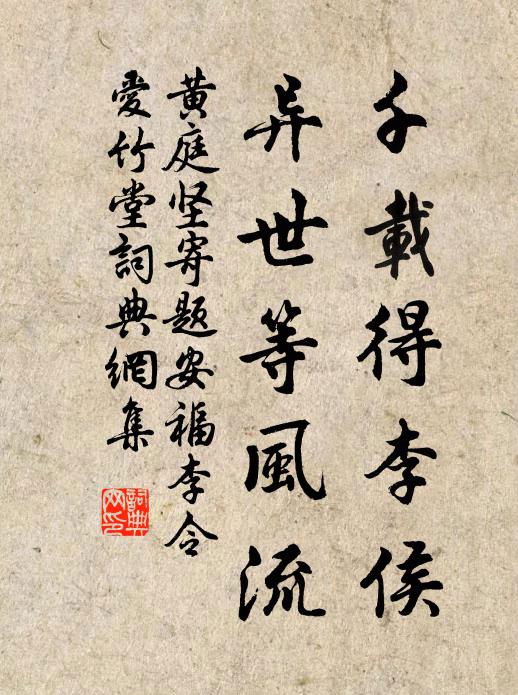 千載得李侯
异世等風流
黄庭坚寄題安福李令
愛竹堂詞典網集
詞典
网印